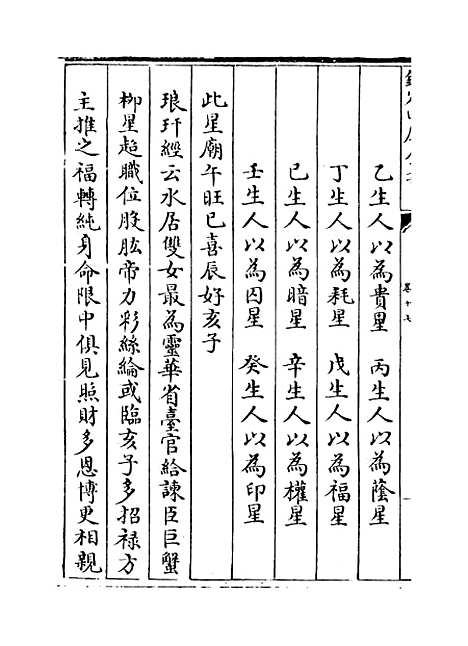 乙生人以為貴星　丙生人以為蔭星
丁生人以為耗星　戊生人以為福星
巳生人以為暗星　辛生人以為權星
壬生人以為囚星　癸生人以為印星
此星廟午旺巳喜辰好亥子
琅玕經云水居雙女最為靈華省臺官給諫臣巨蟹
柳星趂職位股肱帝力彩絲綸或臨亥子多招禄方
主推之福轉純身命限中俱見照財多恩博更相親
卷十七